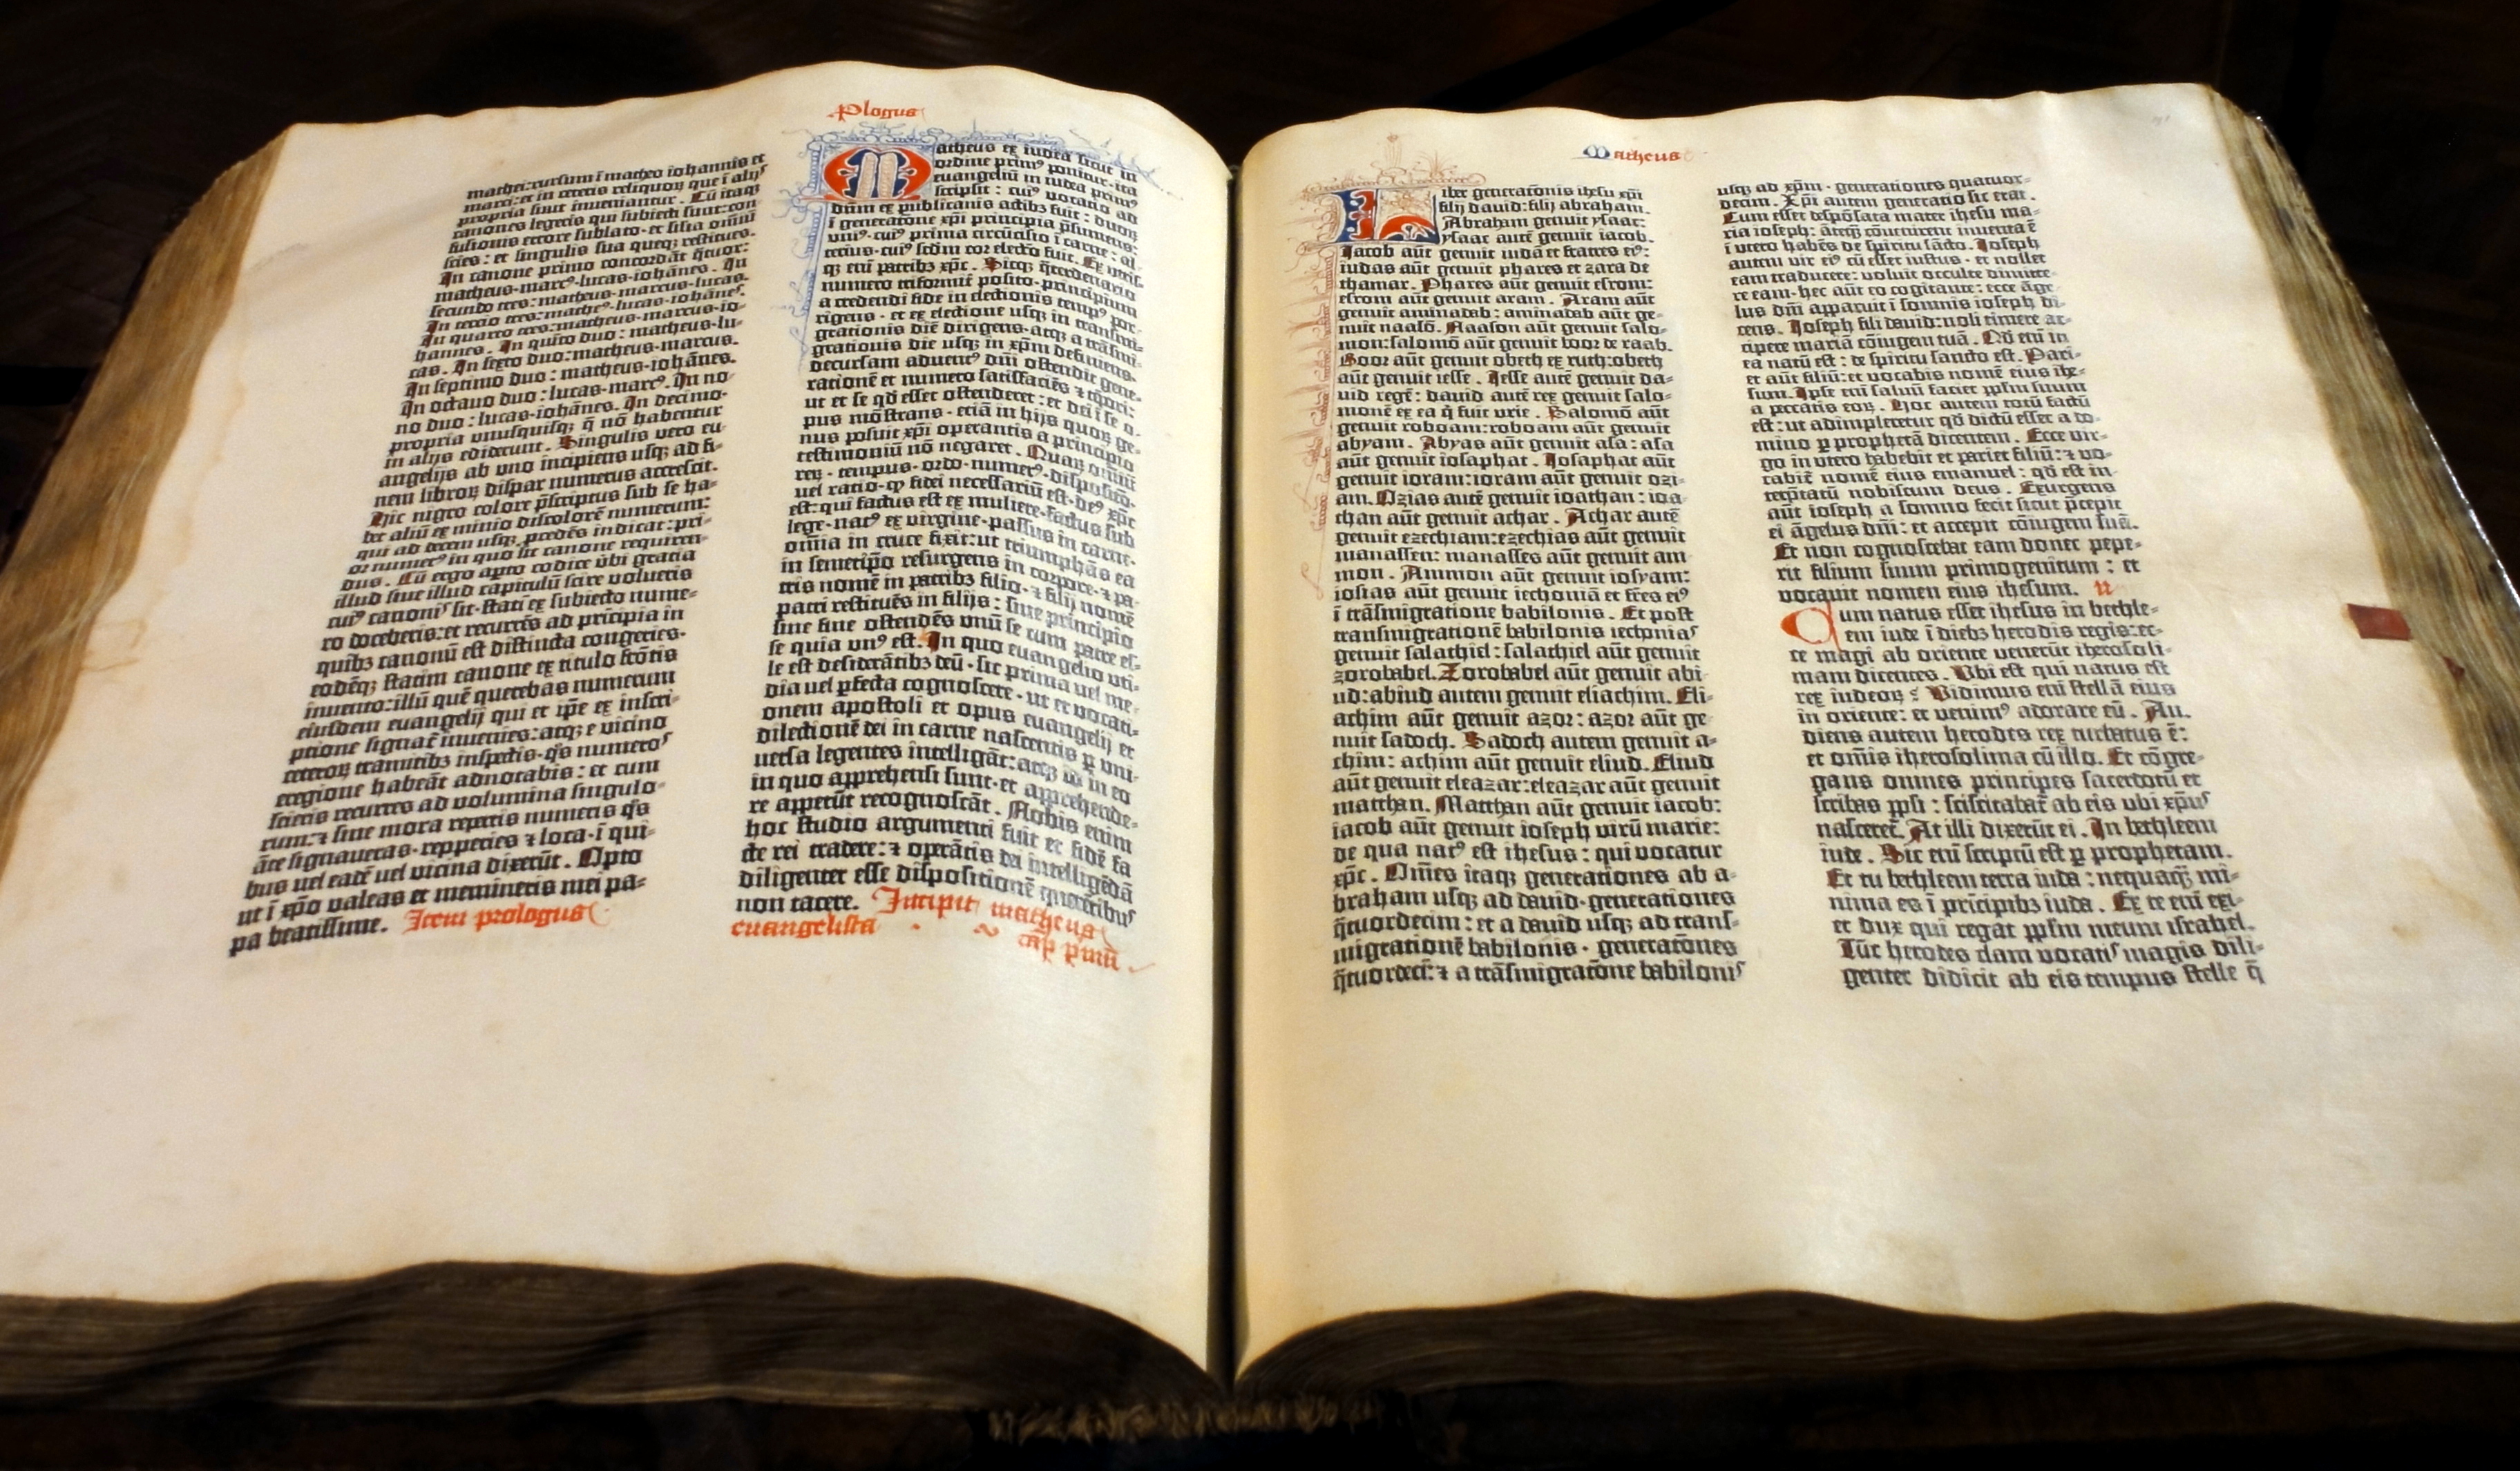 Plogus
mathei: rursum ĩ matheo iohannis et
marci: et in ceteris reliquoꝝ que ĩ alijs
propria sunt inveniantur. Cũ itaqꝫ
canones legeris qui subiecti sunt: con-
fusionis errore sublato et silia omniũ
scies: et singulis sua queqꝫ restitues.
In canone primo concordãt q̃tuor:
matheus·marcꝰ·lucas·iohãnes. In
secundo tres: matheus·marcus·lucas.
In tercio tres: matheꝰ·lucas·iohãnes.
In quarto tres: matheus·marcus·io-
hannes. In quĩto duo: matheus·lu-
cas. In sexto duo: matheus·marcus.
In septimo duo: matheus·iohãnes.
In octauo duo: lucas·marcꝰ. In no-
no duo: lucas·iohãnes. In decimo·
propria vnusquisqꝫ q̃ nõ habentur
in alijs ediderunt. Singulis vero eu-
angelijs ab vno incipiens usqꝫ ad fi-
nem libroꝝ dispar numerus accrescit.
Hic nigro colore p̃scriptus sub se ha-
bet aliũ ex minio discolorẽ numerum:
qui ad decem usqꝫ pcedẽs indicat: pri-
or numerꝰ in quo sit canone requiren-
dus. Cũ ergo apto codice v̾bi gratia
illud siue illud capitulũ scire volueris
cuiꝰ canonis sit·statĩ ex subiecto nume-
ro doceberis: et recurrẽs ad pricipia in
quibꝫ canonũ est distincta congeries·
eodẽqꝫ statim canone ex titulo frõtis
inuento: illũ quẽ querebas numerum
eiusdem euangelij qui et ip̃e ex inscri-
ptione signat̃ inuenies: atqꝫ e vicino
ceteroꝝ tramitibꝫ inspectis·q̃s numeros
eregione habeãt adnotabis: et cum
scieris recurres ad volumina singulo-
rum: ⁊ sine mora repertis numeris q̃s
ãte signaueras·repperies ⁊ loca·ĩ qui-
bus uel eadẽ uel vicina dixerũt. Opto
ut ĩ xp̃o valeas et memineris mei pa-
pa beatissime. Item prologus
Matheus ex iudea sicut in
ordine primꝰ ponitur·ita
euangeliũ in iudea primꝰ
scripsit: cuiꝰ vocatio ad
dũm ex publicanis actibꝫ fuit: duoꝝ
ĩ generatõne xp̃i principia p̃sumens:
vniꝰ·cuiꝰ prima circũcisio ĩ carne: al-
terius·cuiꝰ secdm cor electio fuit. Ex utrisqꝫ
eñ patribꝫ xp̃c. Sicqꝫ q̃terdenario
numero triformit̃ posito·principium
a credendi fide in electionis tempꝰ por-
rigens·et ex electione usqꝫ in transmi-
grationis diẽ dirigens·atqꝫ a trãsmi-
grationis die usqꝫ in xp̃m definiens·
decursam aduentꝰ dñi ostendit gene-
rationẽ et numero satisfaciẽs ⁊ tẽpori:
ut et se qd̃ esset ostenderet: et dei ĩ se o-
pus mõstrans·etiã in hijs quoꝝ ge-
nus posuit xp̃i operantis a principio
testimoniũ nõ negaret. Quaꝝ omiũ
reꝝ·tempus·ordo·numerꝰ·dispositio·
uel ratio·qꝫ fidei necessariũ est·deꝰ xp̃c
est: qui factus est ex muliere·factus sub
lege·natꝰ ex virgine·passus in carne·
om̃ia in cruce fixit: ut triumphãs ea
in semetip̃o resurgens in corpore·⁊ pa-
tris nomẽ in patribꝫ filio·⁊ filij nomẽ
patri restituẽs in filijs: sine principio
sine fine ostendẽs vnũ se cum patre es-
se quia vnꝰ est. In quo euangelio vti-
le est desiderãtibꝫ deũ·sic prima uel me-
dia uel pfecta cognoscere·ut et vocati-
onem apostoli et opus euangelij et
dilectionẽ dei in carne nascentis p̱ vni-
uersa legentes intelligãt: atqꝫ id in eo
in quo apprehensi sunt·et apprehende-
re appetũt recognoscãt. Nobis enim
hoc studio argumenti fuit et fidẽ fa-
cte rei tradere: ⁊ operãtis dei intelligẽdã
diligenter esse dispositionẽ querẽtibus
non tacere. Incipit matheus
euangelista cap̃ p̃mũ
Matheus
Liber generatõnis ihesu xp̃i
filij dauid: filij abraham.
Abraham genuit ysaac:
ysaac autẽ genuit iacob.
Iacob aũt genuit iudã et fratres eiꝰ:
iudas aũt genuit phares et zara de
thamar. Phares aũt genuit esrom:
esrom aũt genuit aram. Aram aũt
genuit aminadab: aminadab aũt ge-
nuit naasõ. Naason aũt genuit salo-
mon: salomõ aũt genuit booz de raab.
Booz aũt genuit obeth ex ruth: obeth
aũt genuit iesse. Iesse autẽ genuit da-
uid regẽ: dauid autẽ rex genuit salo-
monẽ ex ea q̃ fuit vrie. Salomõ aũt
genuit roboam: roboam aũt genuit
abyam. Abyas aũt genuit asa: asa
aũt genuit iosaphat. Iosaphat aũt
genuit ioram: ioram aũt genuit ozi-
am. Ozias autẽ genuit ioathan: ioa-
than aũt genuit achar. Achar autẽ
genuit ezechiam: ezechias aũt genuit
manassen: manasses aũt genuit am-
mon. Ammon aũt genuit iosyam:
iosias aũt genuit iechoniã et fr̃es eiꝰ
ĩ trãsmigratione babilonis. Et post
transmigrationẽ babilonis iechonias
genuit salachiel: salachiel aũt genuit
zorobabel. Zorobabel aũt genuit abi-
ud: abiud autem genuit eliachim. Eli-
achim aũt genuit azor: azor aũt ge-
nuit sadoch. Sadoch autem genuit a-
chim: achim aũt genuit eliud. Eliud
aũt genuit eleazar: eleazar aũt genuit
matthan. Matthan aũt genuit iacob:
iacob aũt genuit ioseph virũ marie:
de qua natꝰ est ihesus: qui vocatur
xp̃c. Om̃es itaqꝫ generationes ab a-
braham usqꝫ ad dauid·generationes
q̃tuordecim: et a dauid usqꝫ ad trans-
migrationẽ babilonis·generatõnes
q̃tuordeci: ⁊ a trãsmigratõne babilonis
usqꝫ ad xp̃m·generationes quatuor-
decim. Xp̃i autem generatio sic erat.
Cum esset despõsata mater ihesu ma-
ria ioseph: ãteqꝫ cõuenirent inuenta ẽ
ĩ utero habẽs de spiritu sãcto. Ioseph
autem vir eiꝰ cũ esset iustus·et nollet
eam traducere: voluit occulte dimitte-
re eam·hec aũt eo cogitante: ecce ãge-
lus dñi apparuit ĩ somnis ioseph di-
cens. Ioseph fili dauid: noli timere ac-
cipere mariã cõiugem tuã. Qd̃ eñ in
ea natũ est: de spiritu sancto est. Pari-
et aũt filiũ: et vocabis nomẽ eius ihe-
sum. Ipse eñ saluũ faciet pp̃lm suum
a peccatis eoꝝ. Hoc autem totũ factũ
est: ut adimpleretur qd̃ dictũ esset a do-
mino p̱ prophetã dicentem. Ecce vir-
go in utero habebit et pariet filiũ: ⁊ vo-
cabit̃ nomẽ eius emanuel: qd̃ est in-
terp̃tatũ nobiscum deus. Exurgens
aũt ioseph a somno fecit sicut p̃cepit
ei ãgelus dñi: et accepit cõiugem suã.
Et non cognoscebat eam donec pepe-
rit filium suum primogenitum: et
vocauit nomen eius ihesum. II
Cum natus esset ihesus in bethle-
em iude ĩ diebꝫ herodis regis: ec-
ce magi ab oriente venerũt iherosoli-
mam dicentes. Vbi est qui natus est
rex iudeoꝝ? Vidimus eñ stellã eius
in oriente: et venimꝰ adorare eũ. Au-
diens autem herodes rex turbatus ẽ:
et om̃is iherosolima cũ illo. Et cõgre-
gans omnes principes sacerdotũ et
scribas pp̃li: sciscitabat̃ ab eis vbi xp̃us
nasceret̃. At illi dixerũt ei. In bethleem
iude. Sic eñ scriptũ est p̱ prophetam.
Et tu bethleem terra iuda: nequaqꝫ mi-
nima es ĩ pricipibꝫ iuda. Ex te eñ exi-
et dux qui regat pp̃lm meum israhel.
Tũc herodes clam vocatis magis dili-
genter didicit ab eis tempus stelle q̃